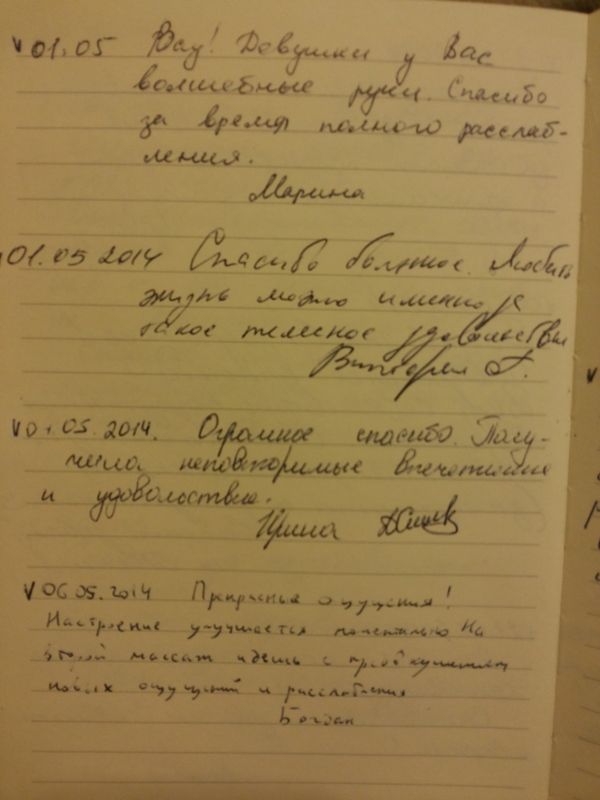 v 01.05 Вау! Девушки у Вас
волшебные руки. Спасибо
за время полного расслаб-
ления.
Марина
01.05 2014 Спасибо большое. Любить
жизнь можно именно за
такое телесное удовольствие
Виктория Г.
v 01.05.2014. Огромное спасибо. Полу-
чила неповторимые впечатления
и удовольствие.
Ирина
v 06.05.2014 Прекрасные ощущения!
Настроение улучшается моментально. На
второй массаж идешь с предвкушением
новых ощущений и расслабления
Богдан